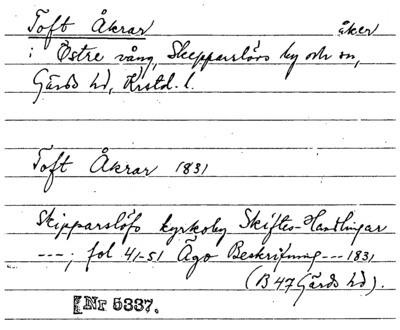 Toft Åkrar åker
i Östre vång, Skepparslövs by och sn,
Gärds hd, Krstd. l.
Toft Åkrar 1831
Skipparslöfs kyrkoby Skiftes-Handlingar
---; fol 41-51 Ägo Beskrifning --- 1831
(B 47 Gärds hd).
[Nr 5337.